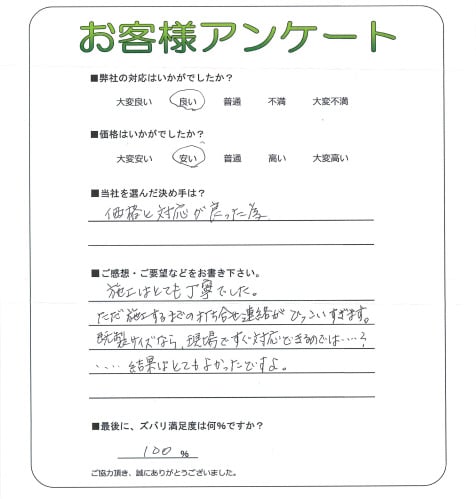 お客様アンケート
■弊社の対応はいかがでしたか?
大変良い 良い 普通 不満 大変不満
■価格はいかがでしたか?
大変安い 安い 普通 高い 大変高い
■当社を選んだ決め手は?
価格と対応が良った為
■ご感想・ご要望などをお書き下さい。
施工はとても丁寧でした。
ただ施工するまでの打ち合せ連絡がひつこいすぎます。
既製サイズなら、現場ですぐ対応できるのでは‥‥?
‥‥結果はとてもよかったですよ。
■最後に、ズバリ満足度は何%ですか?
100 %
ご協力頂き、誠にありがとうございました。